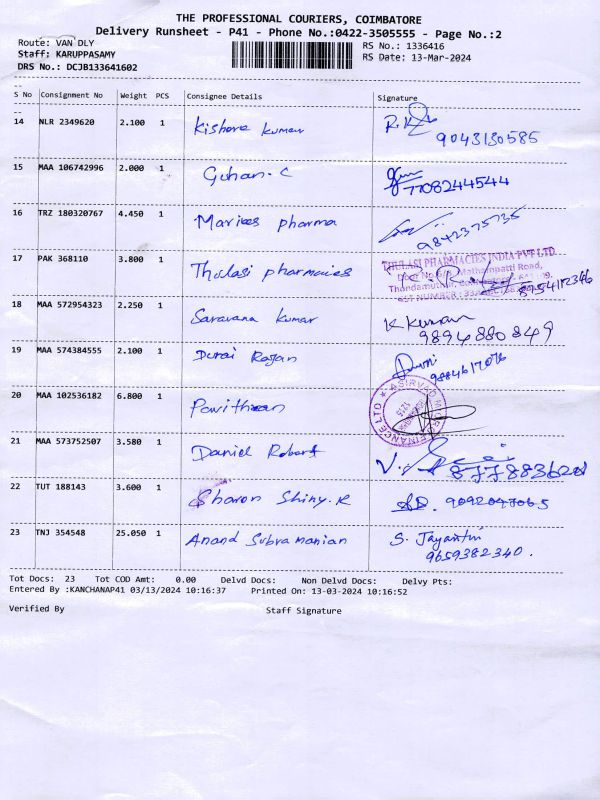 THE PROFESSIONAL COURIERS, COIMBATORE
Delivery Runsheet - P41 - Phone No.:0422-3505555 - Page No.:2
Route: VAN DLY RS No.: 1336416
Staff: KARUPPASAMY RS Date: 13-Mar-2024
DRS No.: DCJB133641602
S No Consignment No Weight PCS Consignee Details Signature
14 NLR 2349620 2.100 1 Kishore Kumar
9043130585
15 MAA 106742996 2.000 1 Guhan. C
7708244544
16 TRZ 180320767 4.450 1 Marices pharma
9842375735
17 PAK 368110 3.800 1 Thulasi pharmacies
THULASI PHARMACIES INDIA PVT LTD
Mathampatti Road,
18 MAA 572954323 2.250 1 Saravana Kumar K Kumaran
9894880849
19 MAA 574384555 2.100 1 Durai Rajan
20 MAA 102536182 6.800 1 Pavithran
ASIRVAD MICRO FINANCE LTD
21 MAA 573752507 3.580 1 Daniel Robert
22 TUT 188143 3.600 1 Sharon Shiny. R
23 TNJ 354548 25.050 1 Anand Subramanian S. Jayanthi
9659382340.
Tot Docs: 23 Tot COD Amt: 0.00 Delvd Docs: Non Delvd Docs: Delvy Pts:
Entered By :KANCHANAP41 03/13/2024 10:16:37 Printed On: 13-03-2024 10:16:52
Verified By Staff Signature